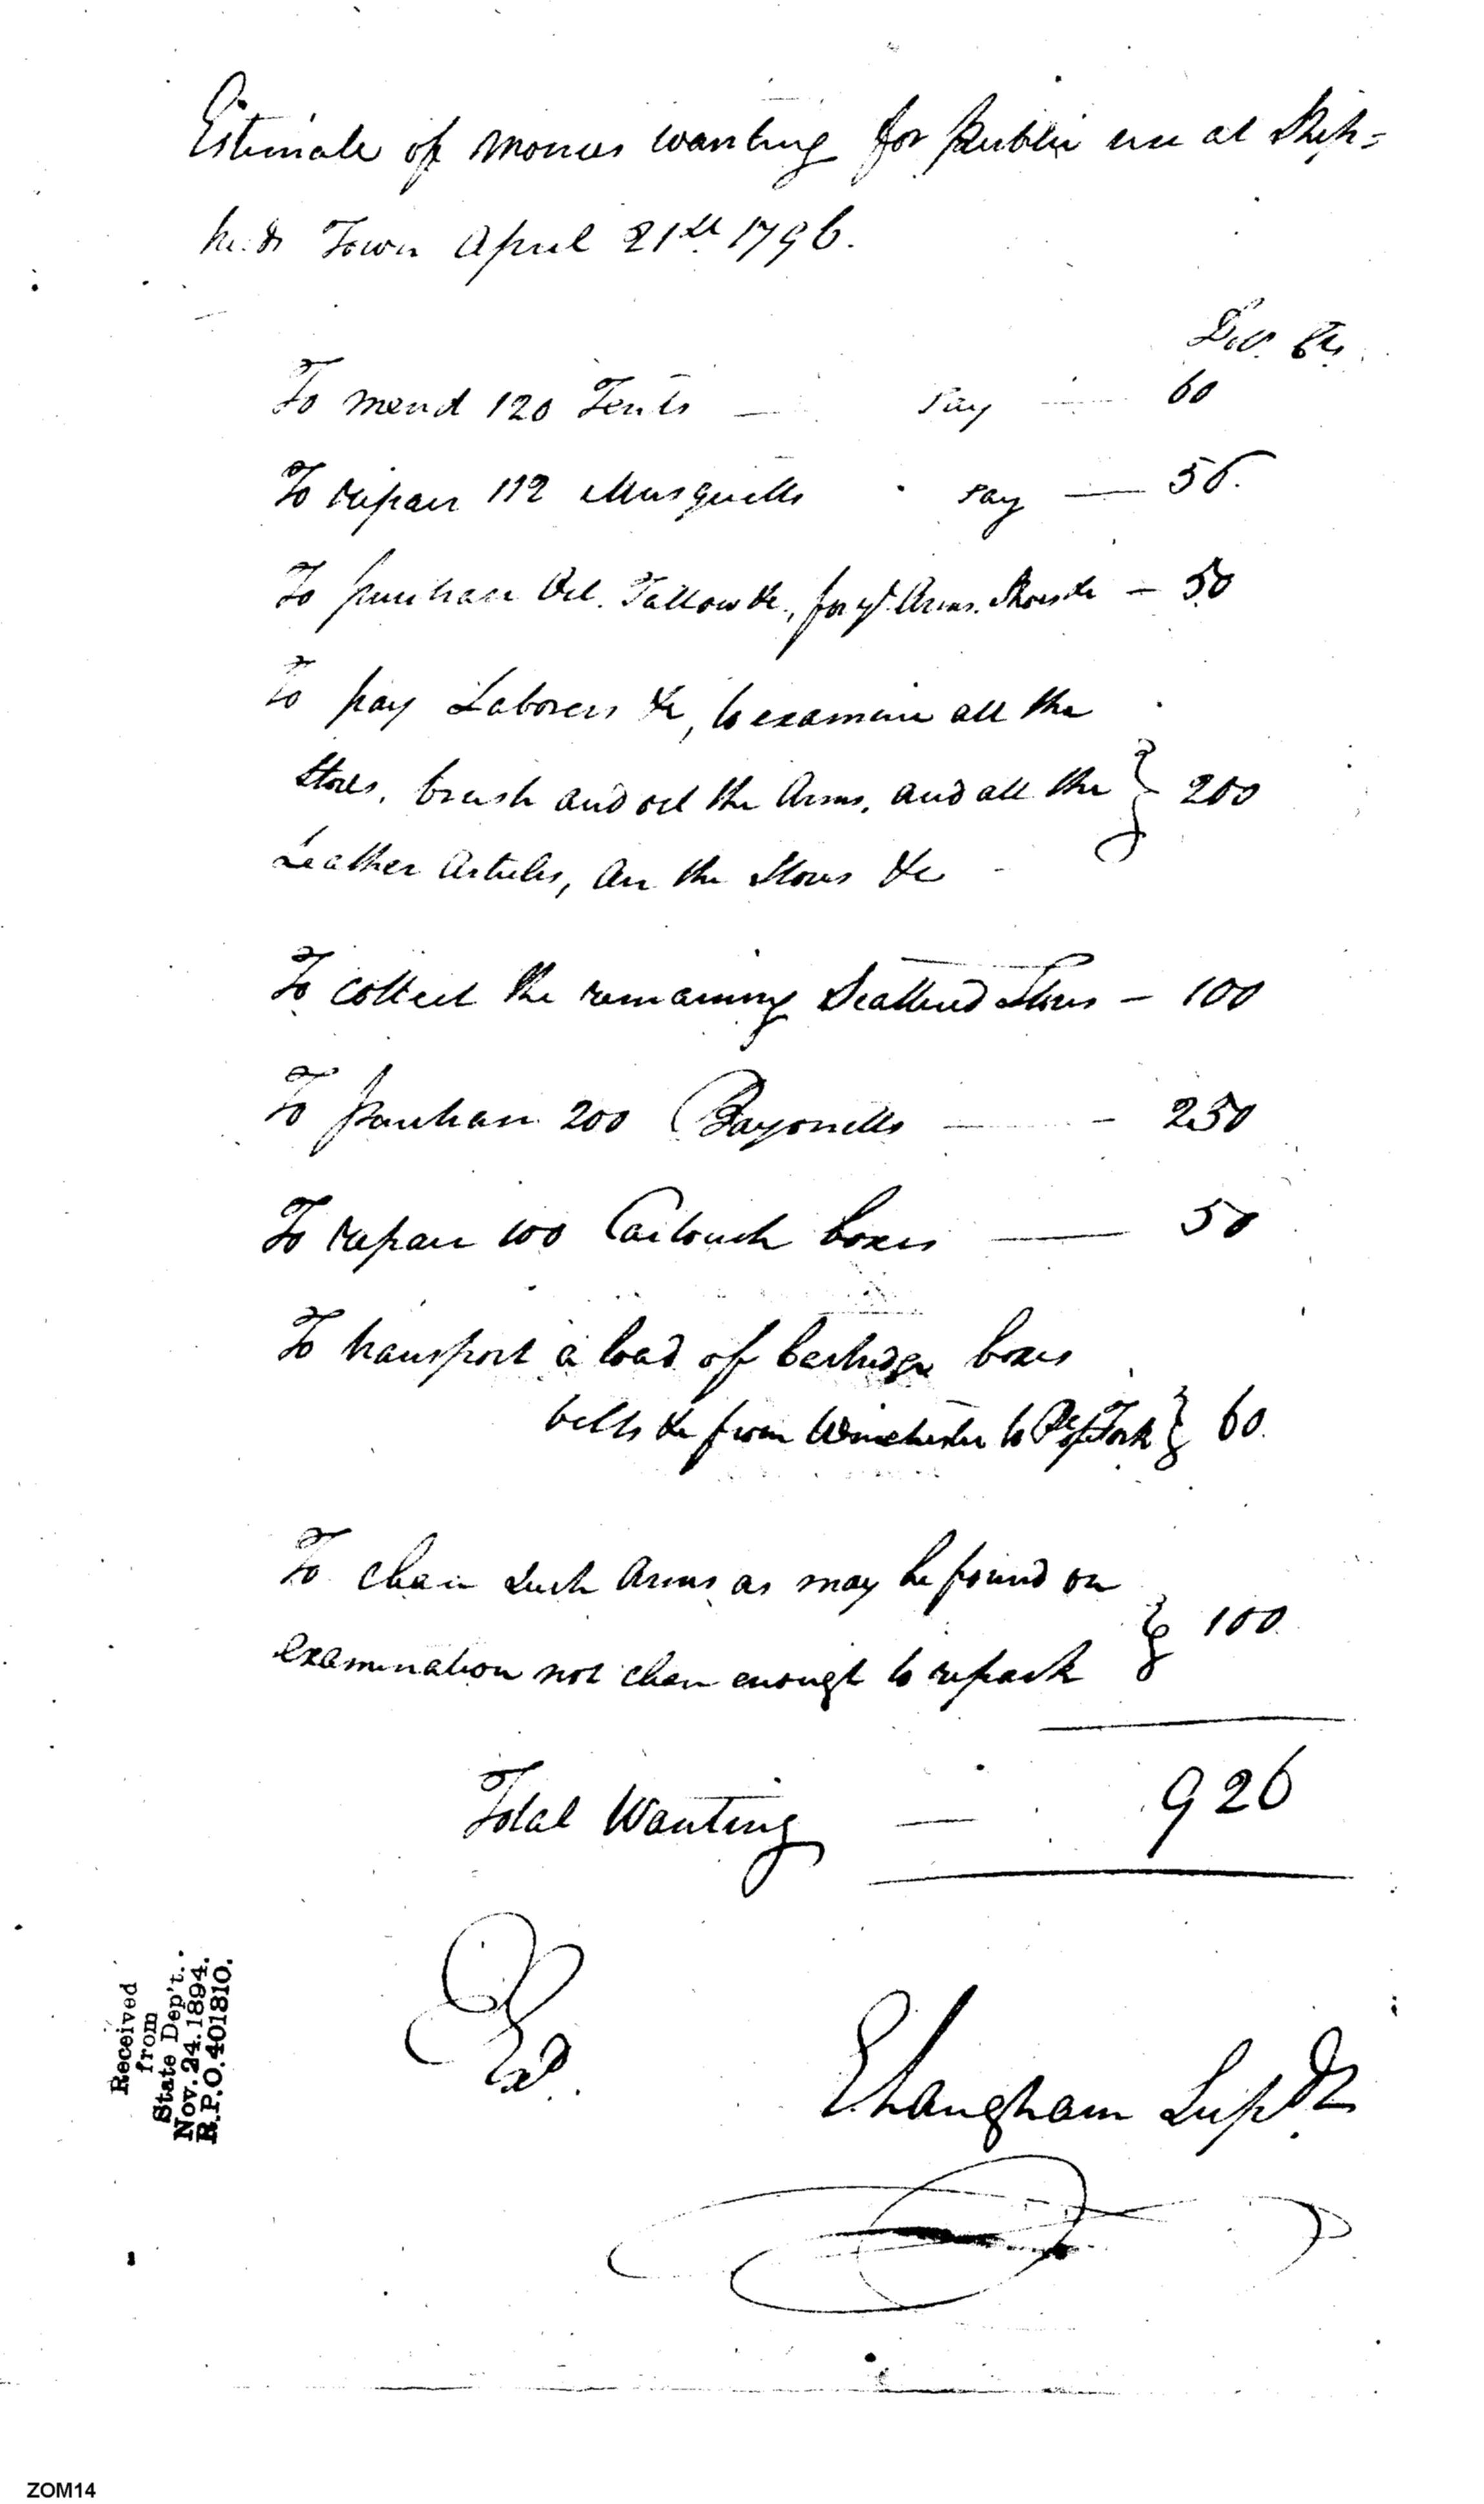 Estimate of monies wanting for Public use at Shep=
herds Town April 21st 1796.
Dol. Cts.
To mend 120 Tents — say — 60
To repair 112 Musquetts say — 56.
To purchase Oil. Tallow &c, for ye Arms. Shoes &c — 50
To pay Laborers &c, to examine all the
Stores, brush and oil the Arms, and all the } 200
Leather Articles, Air the Stores &c
To collect the remaining Scattered Stores — 100
To purchase 200 Bayonetts — 250
To repair 100 Cartouch boxes — 50
To transport a load of Cartridge boxes
belts &c from Winchester to Pt of Fork } 60.
To clean such Arms as may be found on
examination not clean enough to repack } 100
Total Wanting — 926
Exd.
E Langham Supdt
Received
from
State Dep't.
Nov. 24. 1894.
R.P.O. 401810.
ZOM14